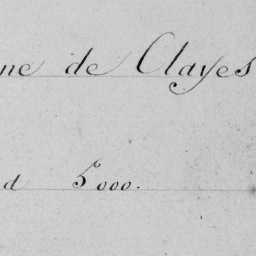 ne de Clayes
d 5000.